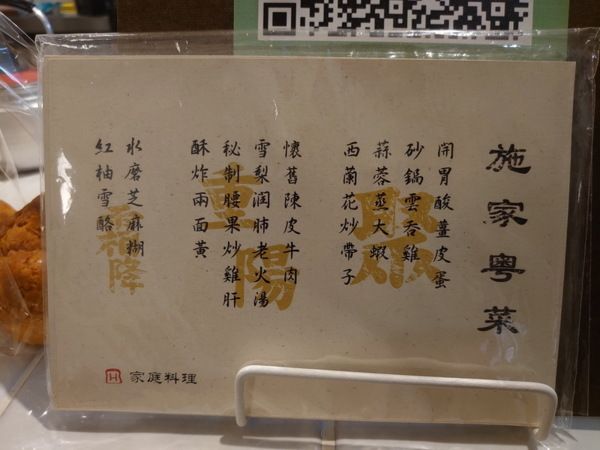 施家粵菜
開胃酸薑皮蛋
砂鍋雲吞雞
蒜蓉蒸大蝦
西蘭花炒帶子
聚
懷舊陳皮牛肉
雪梨潤肺老火湯
秘制腰果炒雞肝
酥炸兩面黃
重陽
水磨芝麻糊
紅柚雪酪
霜降
H 家庭料理